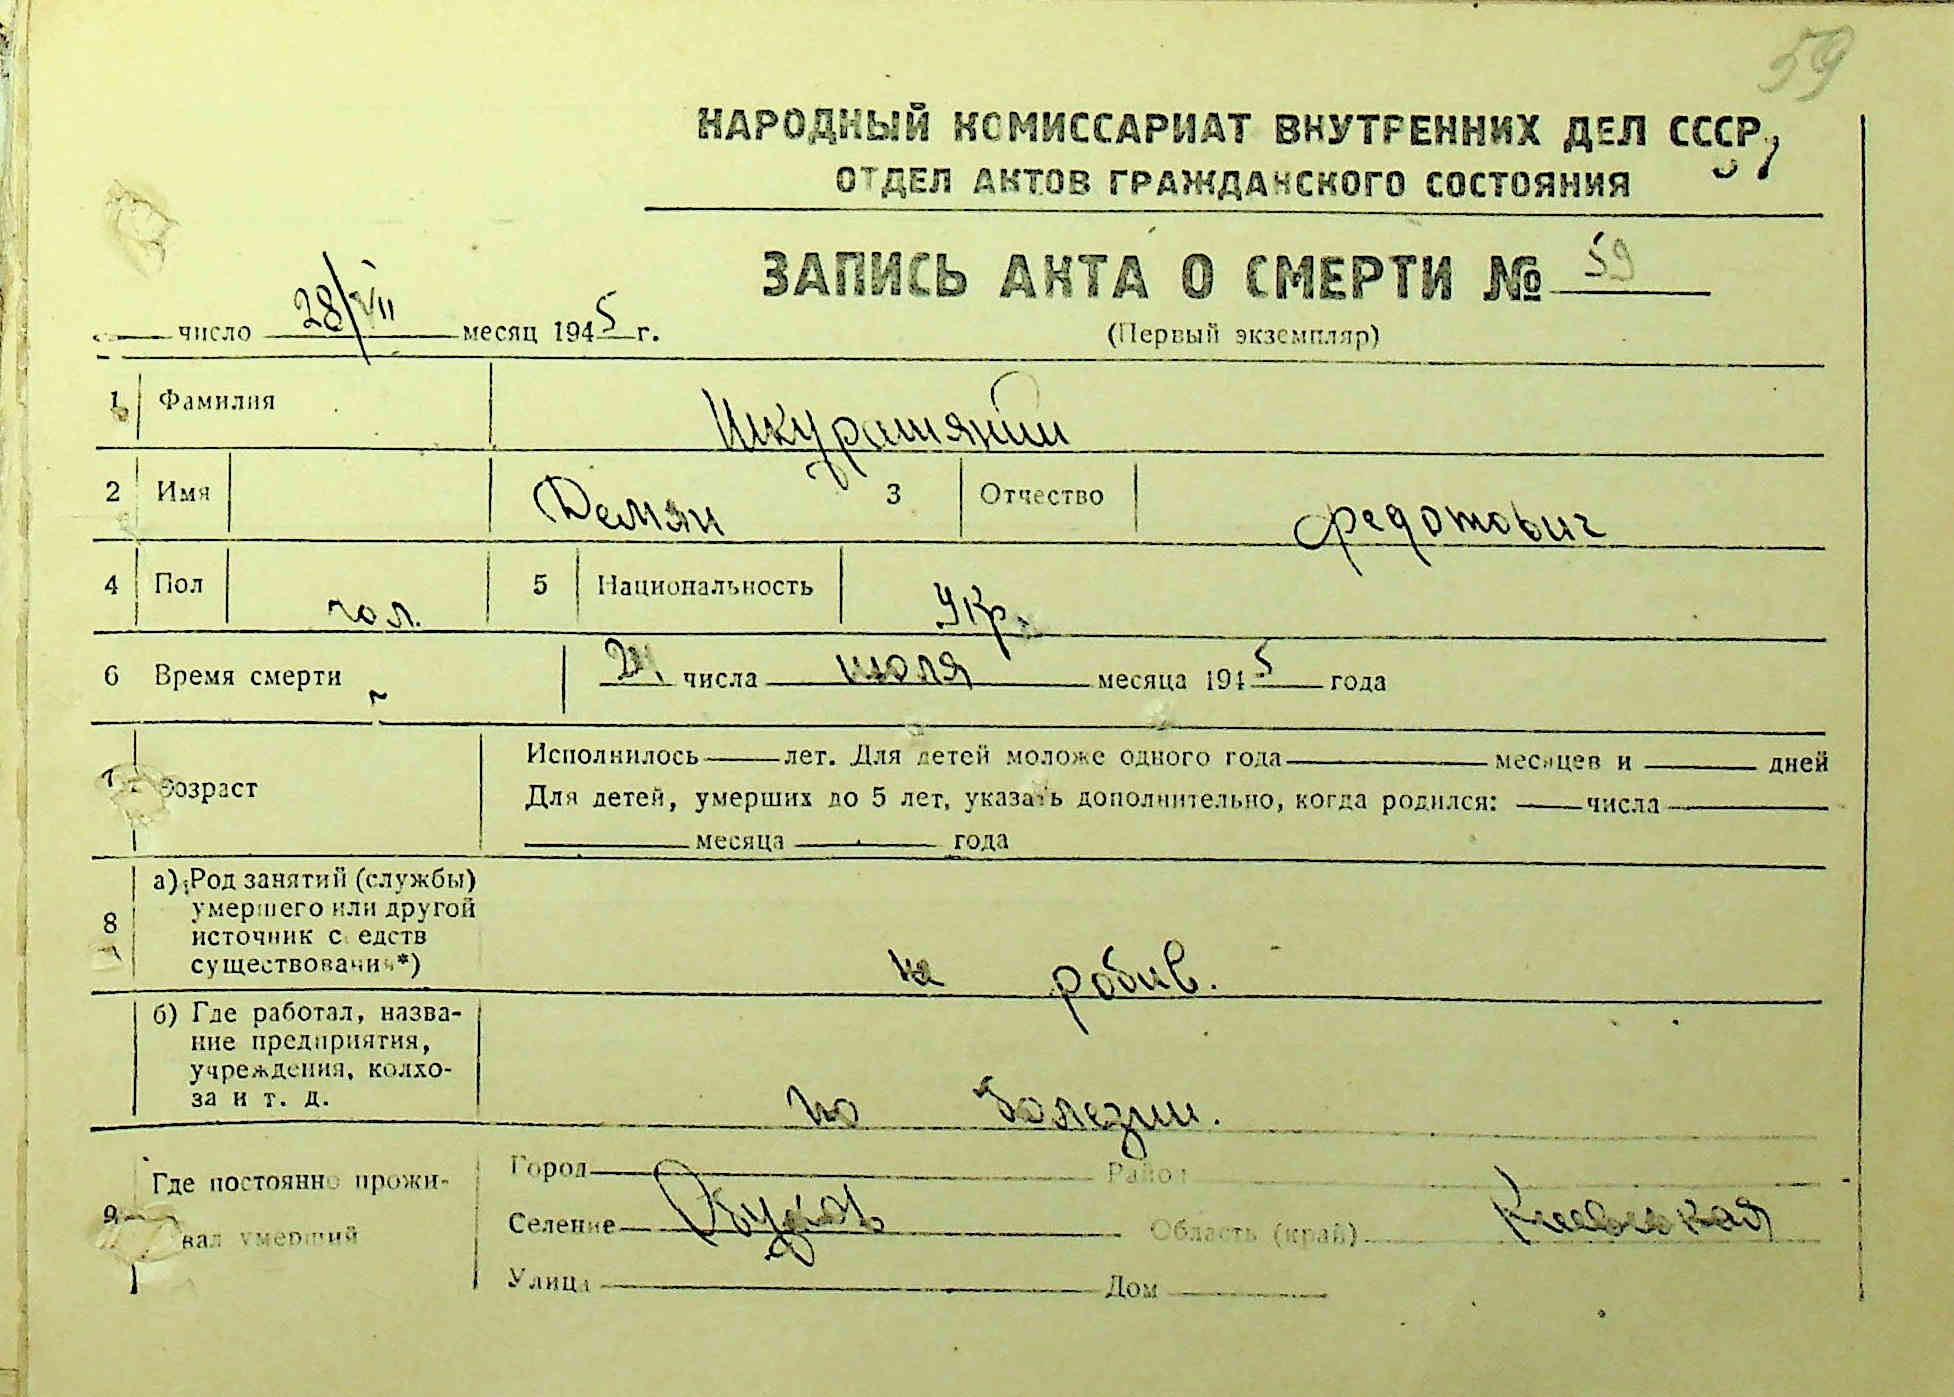 59
НАРОДНЫЙ КОМИССАРИАТ ВНУТРЕННИХ ДЕЛ СССР
ОТДЕЛ АКТОВ ГРАЖДАНСКОГО СОСТОЯНИЯ
ЗАПИСЬ АКТА О СМЕРТИ № 59
число 28/VII месяц 1945 г.
(Первый экземпляр)
1 Фамилия
2 Имя Демян 3 Отчество Федотович
4 Пол чол. 5 Национальность Укр.
6 Время смерти числа июля месяца 1945 года
7 Возраст Исполнилось лет. Для детей моложе одного года месяцев и дней
Для детей, умерших до 5 лет, указать дополнительно, когда родился: числа
месяца года
8 а) Род занятий (службы)
умершего или другой
источник средств
существования*) не робив.
б) Где работал, назва-
ние предприятия,
учреждения, колхо-
за и т. д. по болезни.
9 Где постоянно прожи-
вал умерший
Город Район
Селение Обухов Область (край) Киевская
Улица Дом